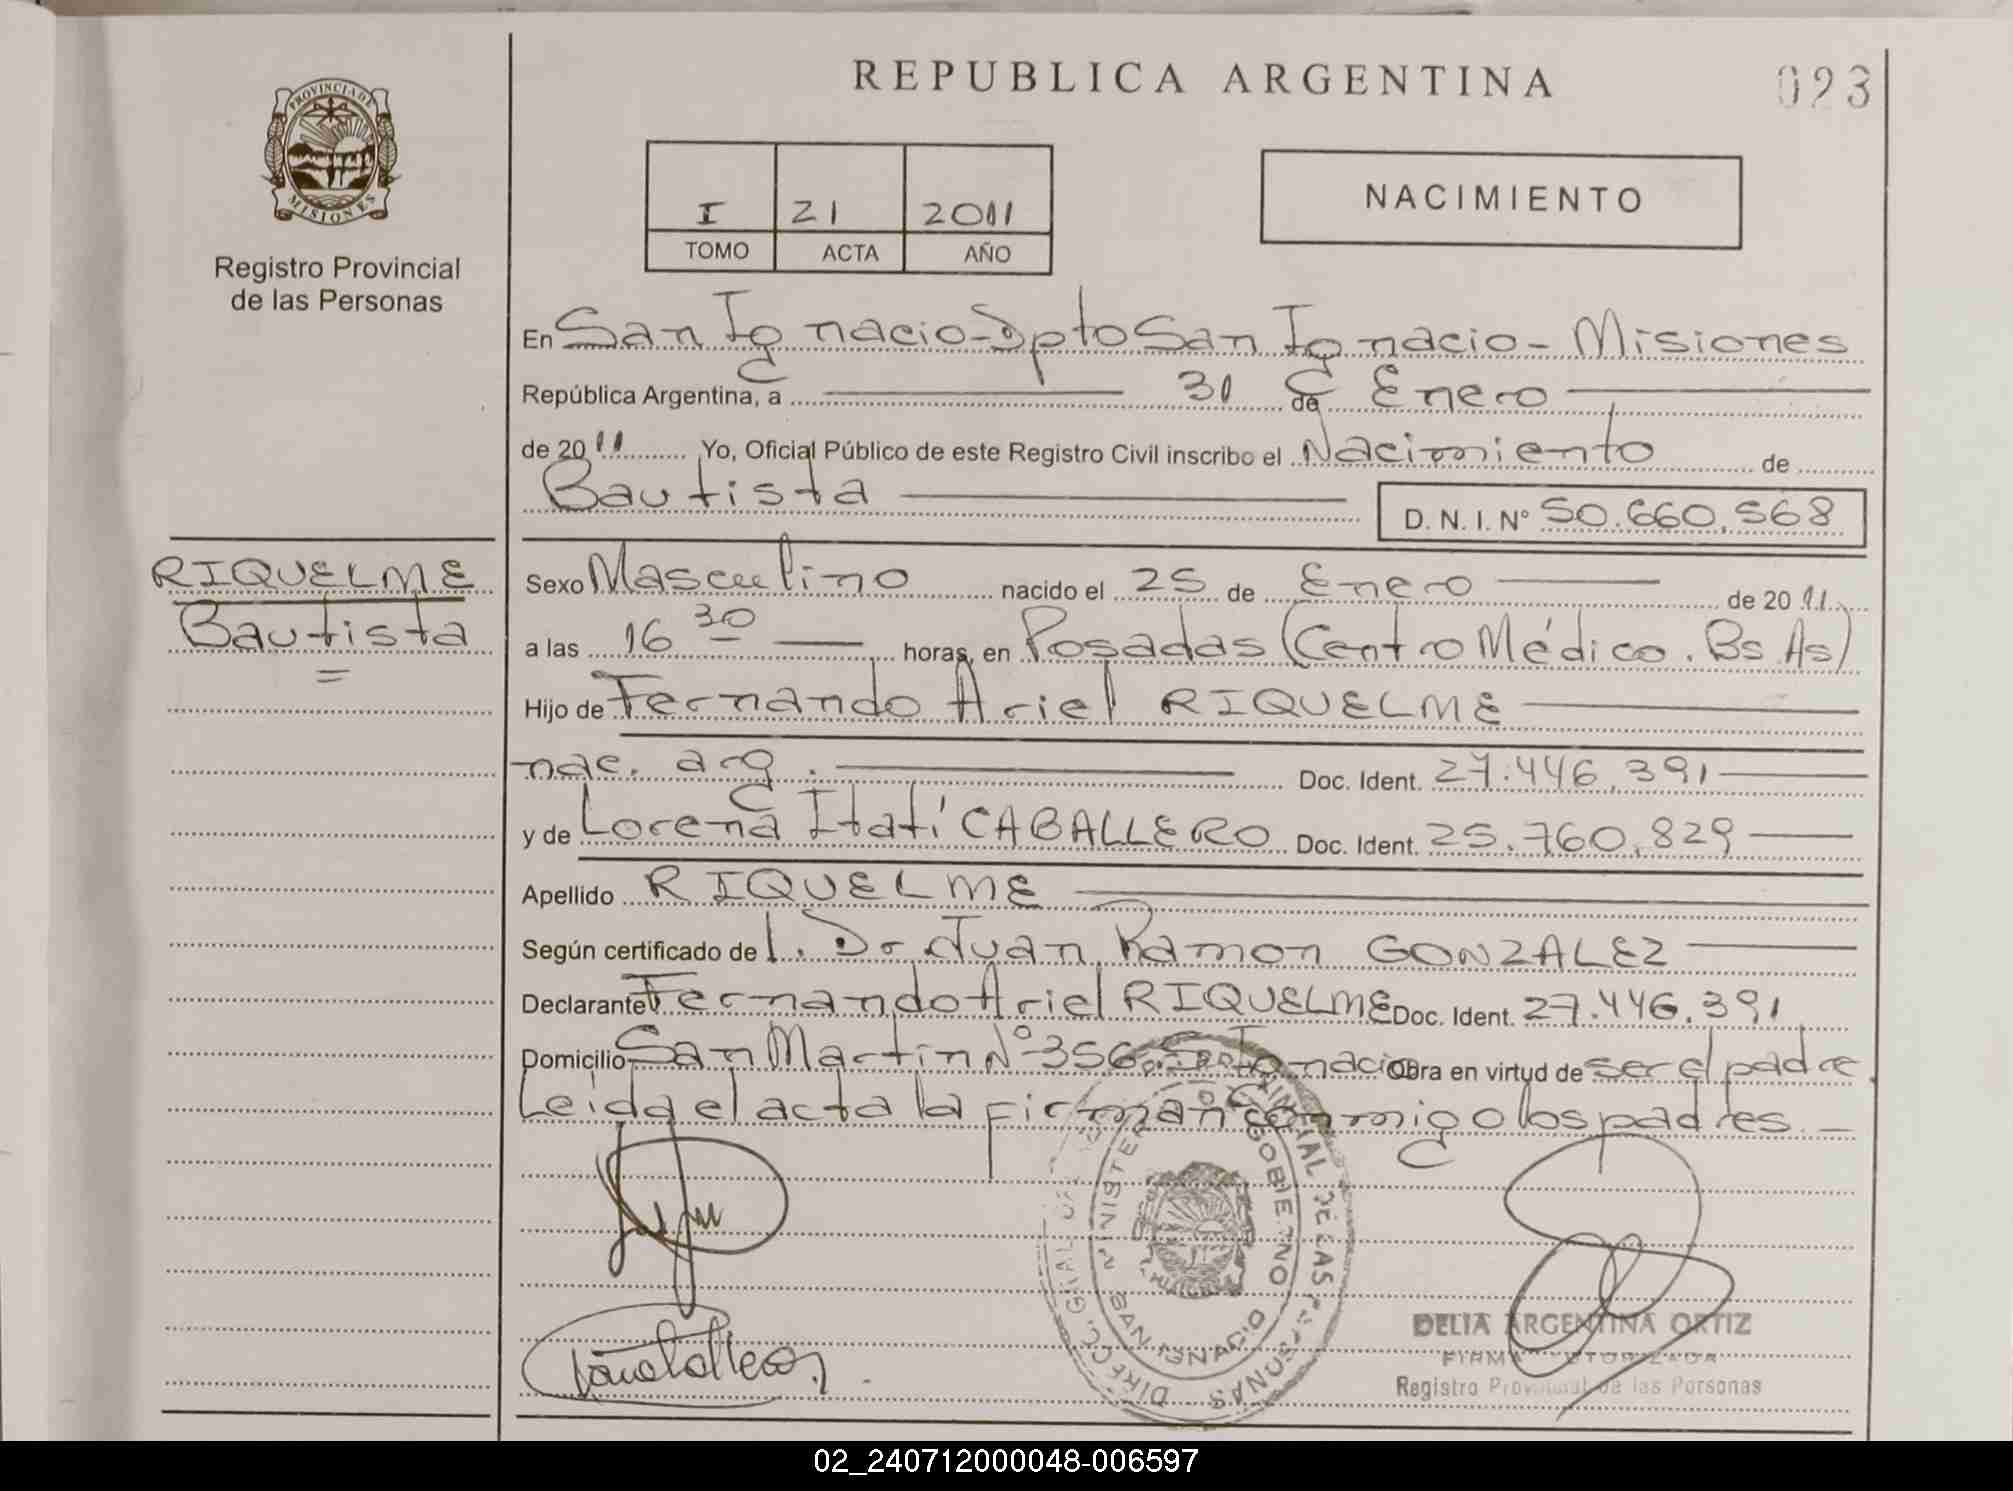 REPUBLICA ARGENTINA
023
PROVINCIA DE
MISIONES
Registro Provincial
de las Personas
I 21 2011
TOMO ACTA AÑO
NACIMIENTO
En San Ignacio - Dpto San Ignacio - Misiones
República Argentina, a 31 de Enero
de 2011 Yo, Oficial Público de este Registro Civil inscribo el Nacimiento de
Bautista D. N. I. Nº 50.660.568
RIQUELME
Bautista
Sexo Masculino nacido el 25 de Enero de 2011
a las 16 30 horas, en Posadas (Centro Médico. Bs. As)
Hijo de Fernando Ariel RIQUELME
nac. arg. Doc. Ident. 27.446.391
y de Lorena Itatí CABALLERO Doc. Ident. 25.760.829
Apellido RIQUELME
Según certificado de l. Dr Juan Ramon GONZALEZ
Declarante Fernando Ariel RIQUELME Doc. Ident. 27.446.391
Domicilio San Martin Nº 356 Ignacio Obra en virtud de ser el padre.
Leida el acta la firman conmigo los padres. -
DIRECC. GRAL PROVINCIAL DE LAS PERSONAS
MINISTERIO DE GOBIERNO
SAN IGNACIO
DELIA ARGENTINA ORTIZ
FIRMA AUTORIZADA
Registro Provincial de las Personas
02_240712000048-006597